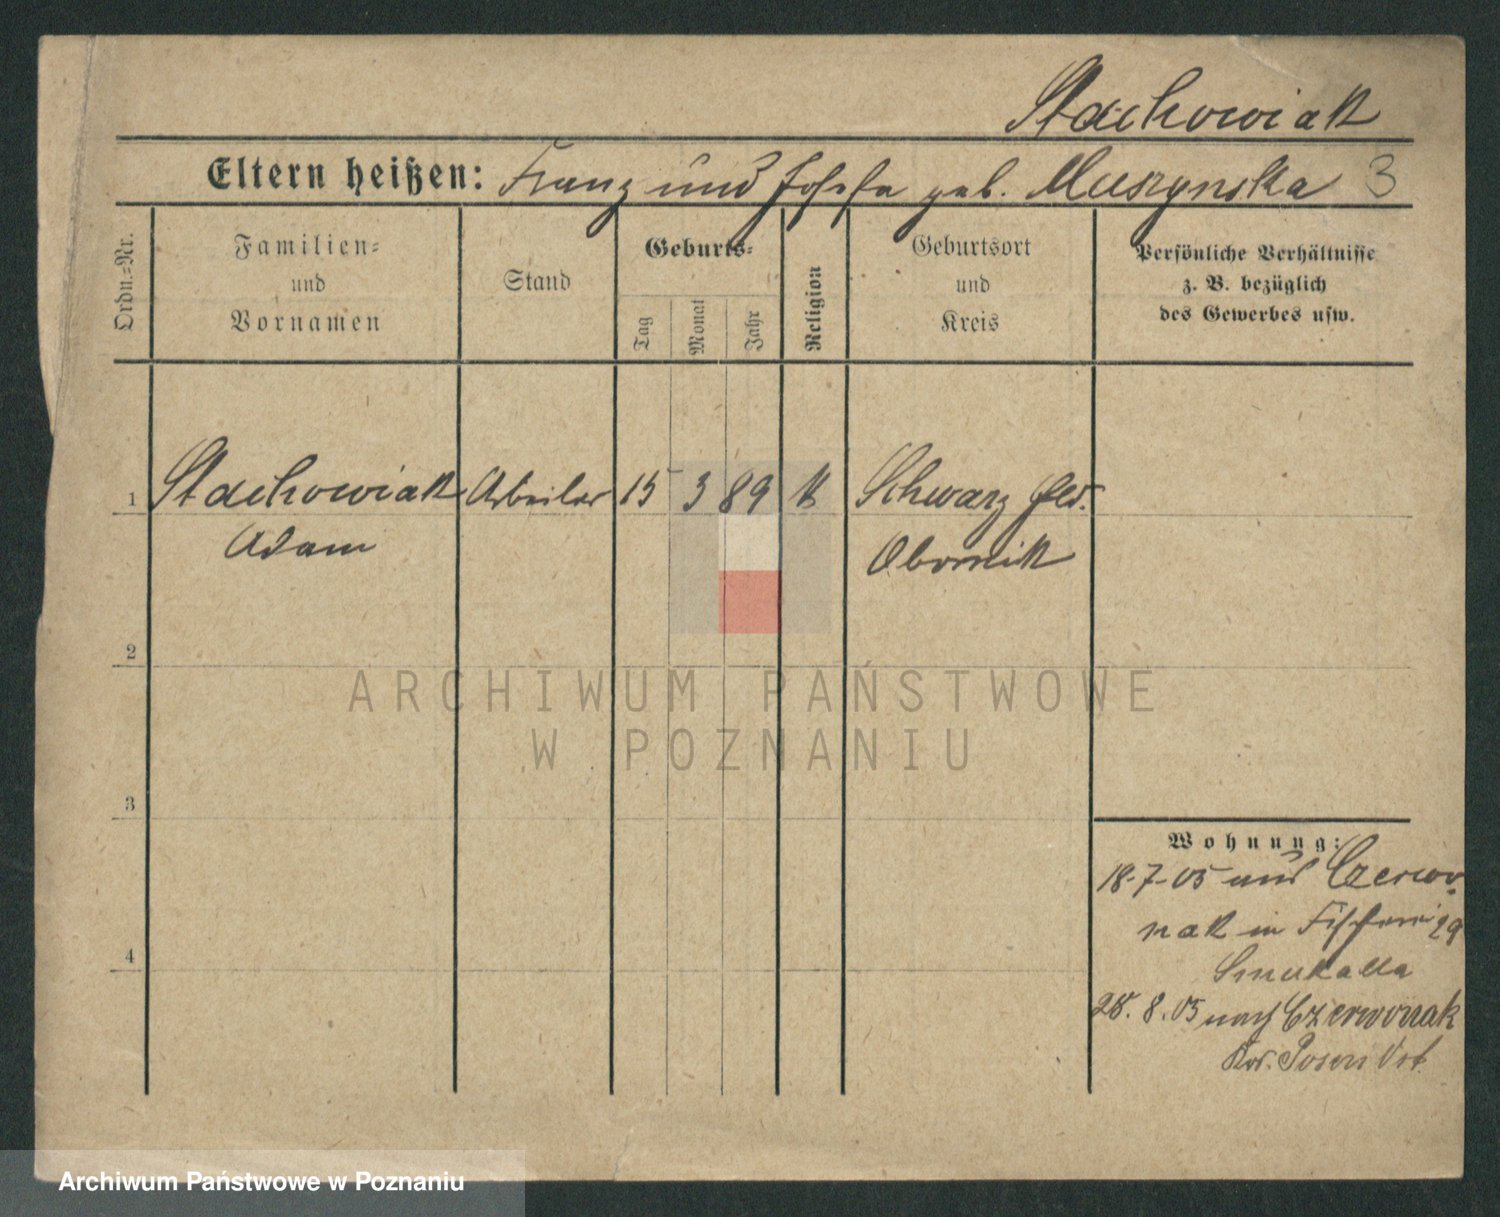 Stachowiak
Eltern heißen: Franz und Josefa geb. Muszynska 3
Ordn.=Nr.
Familien=
und
Vornamen
Stand
Geburts=
Tag
Monat
Jahr
Religion
Geburtsort
und
Kreis
Persönliche Verhältnisse
z. B. bezüglich
des Gewerbes usw.
1 Stachowiak Arbeiter 15 3 89 K Schwarz
Adam Obornik
2
ARCHIWUM PAŃSTWOWE
W POZNANIU
3
Wohnung:
18-7-05 aus Czerwo-
nak in Fischerei 29
Smukalla
28. 8. 05 nach Czerwonak
Krs. Posen Ost
4
Archiwum Państwowe w Poznaniu